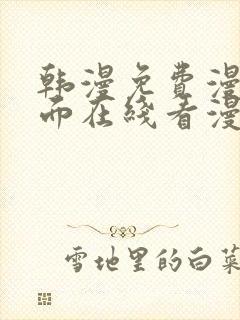 韩漫免费漫
而在线看漫
雪地里的白菜